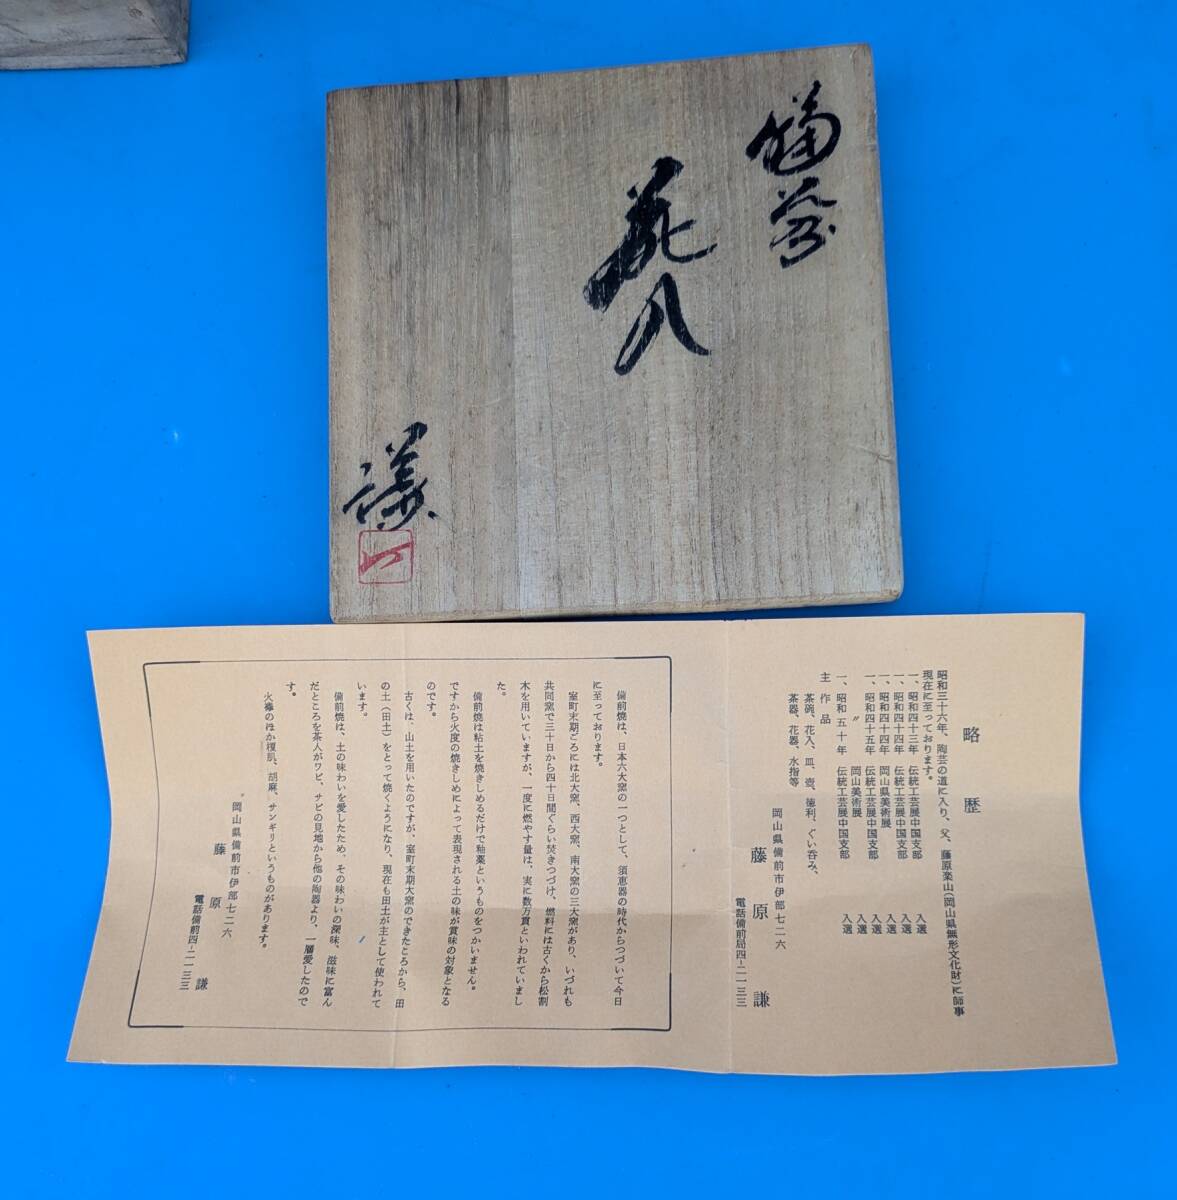 備前
花入
謙
略歴
昭和三十六年、陶芸の道に入り、父、藤原楽山(岡山県無形文化財)に師事
現在に至っております。
一、昭和四十三年　伝統工芸展中国支部　入選
一、昭和四十四年　伝統工芸展中国支部　入選
一、昭和四十四年　岡山県美術展　入選
一、昭和四十五年　伝統工芸展中国支部　入選
〃　岡山美術展　入選
一、昭和五十年　伝統工芸展中国支部　入選
主作品
茶碗、花入、皿、壺、徳利、ぐい呑み、
茶器、花器、水指等
岡山県備前市伊部七二六
藤原　謙
電話備前局四-二一三三
備前焼は、日本六大窯の一つとして、須恵器の時代からつづいて今日
に至っております。
室町末期ごろには北大窯、西大窯、南大窯の三大窯があり、いづれも
共同窯で三十日から四十日間ぐらい焚きつづけ、燃料には古くから松割
木を用いていますが、一度に燃やす量は、実に数万貫といわれていまし
た。
備前焼は粘土を焼きしめるだけで釉薬というものをつかいません。
ですから火度の焼きしめによって表現される土の味が賞味の対象となる
のです。
古くは、山土を用いたのですが、室町末期大窯のできたころから、田
の土(田土)をとって焼くようになり、現在も田土が主として使われて
います。
備前焼は、土の味わいを愛したため、その味わいの深味、滋味に富ん
だところを茶人がワビ、サビの見地から他の陶器より、一層愛したので
す。
火襷のほか榎肌、胡麻、サンギリというものがあります。
岡山県備前市伊部七二六
藤原　謙
電話備前四-二一三三